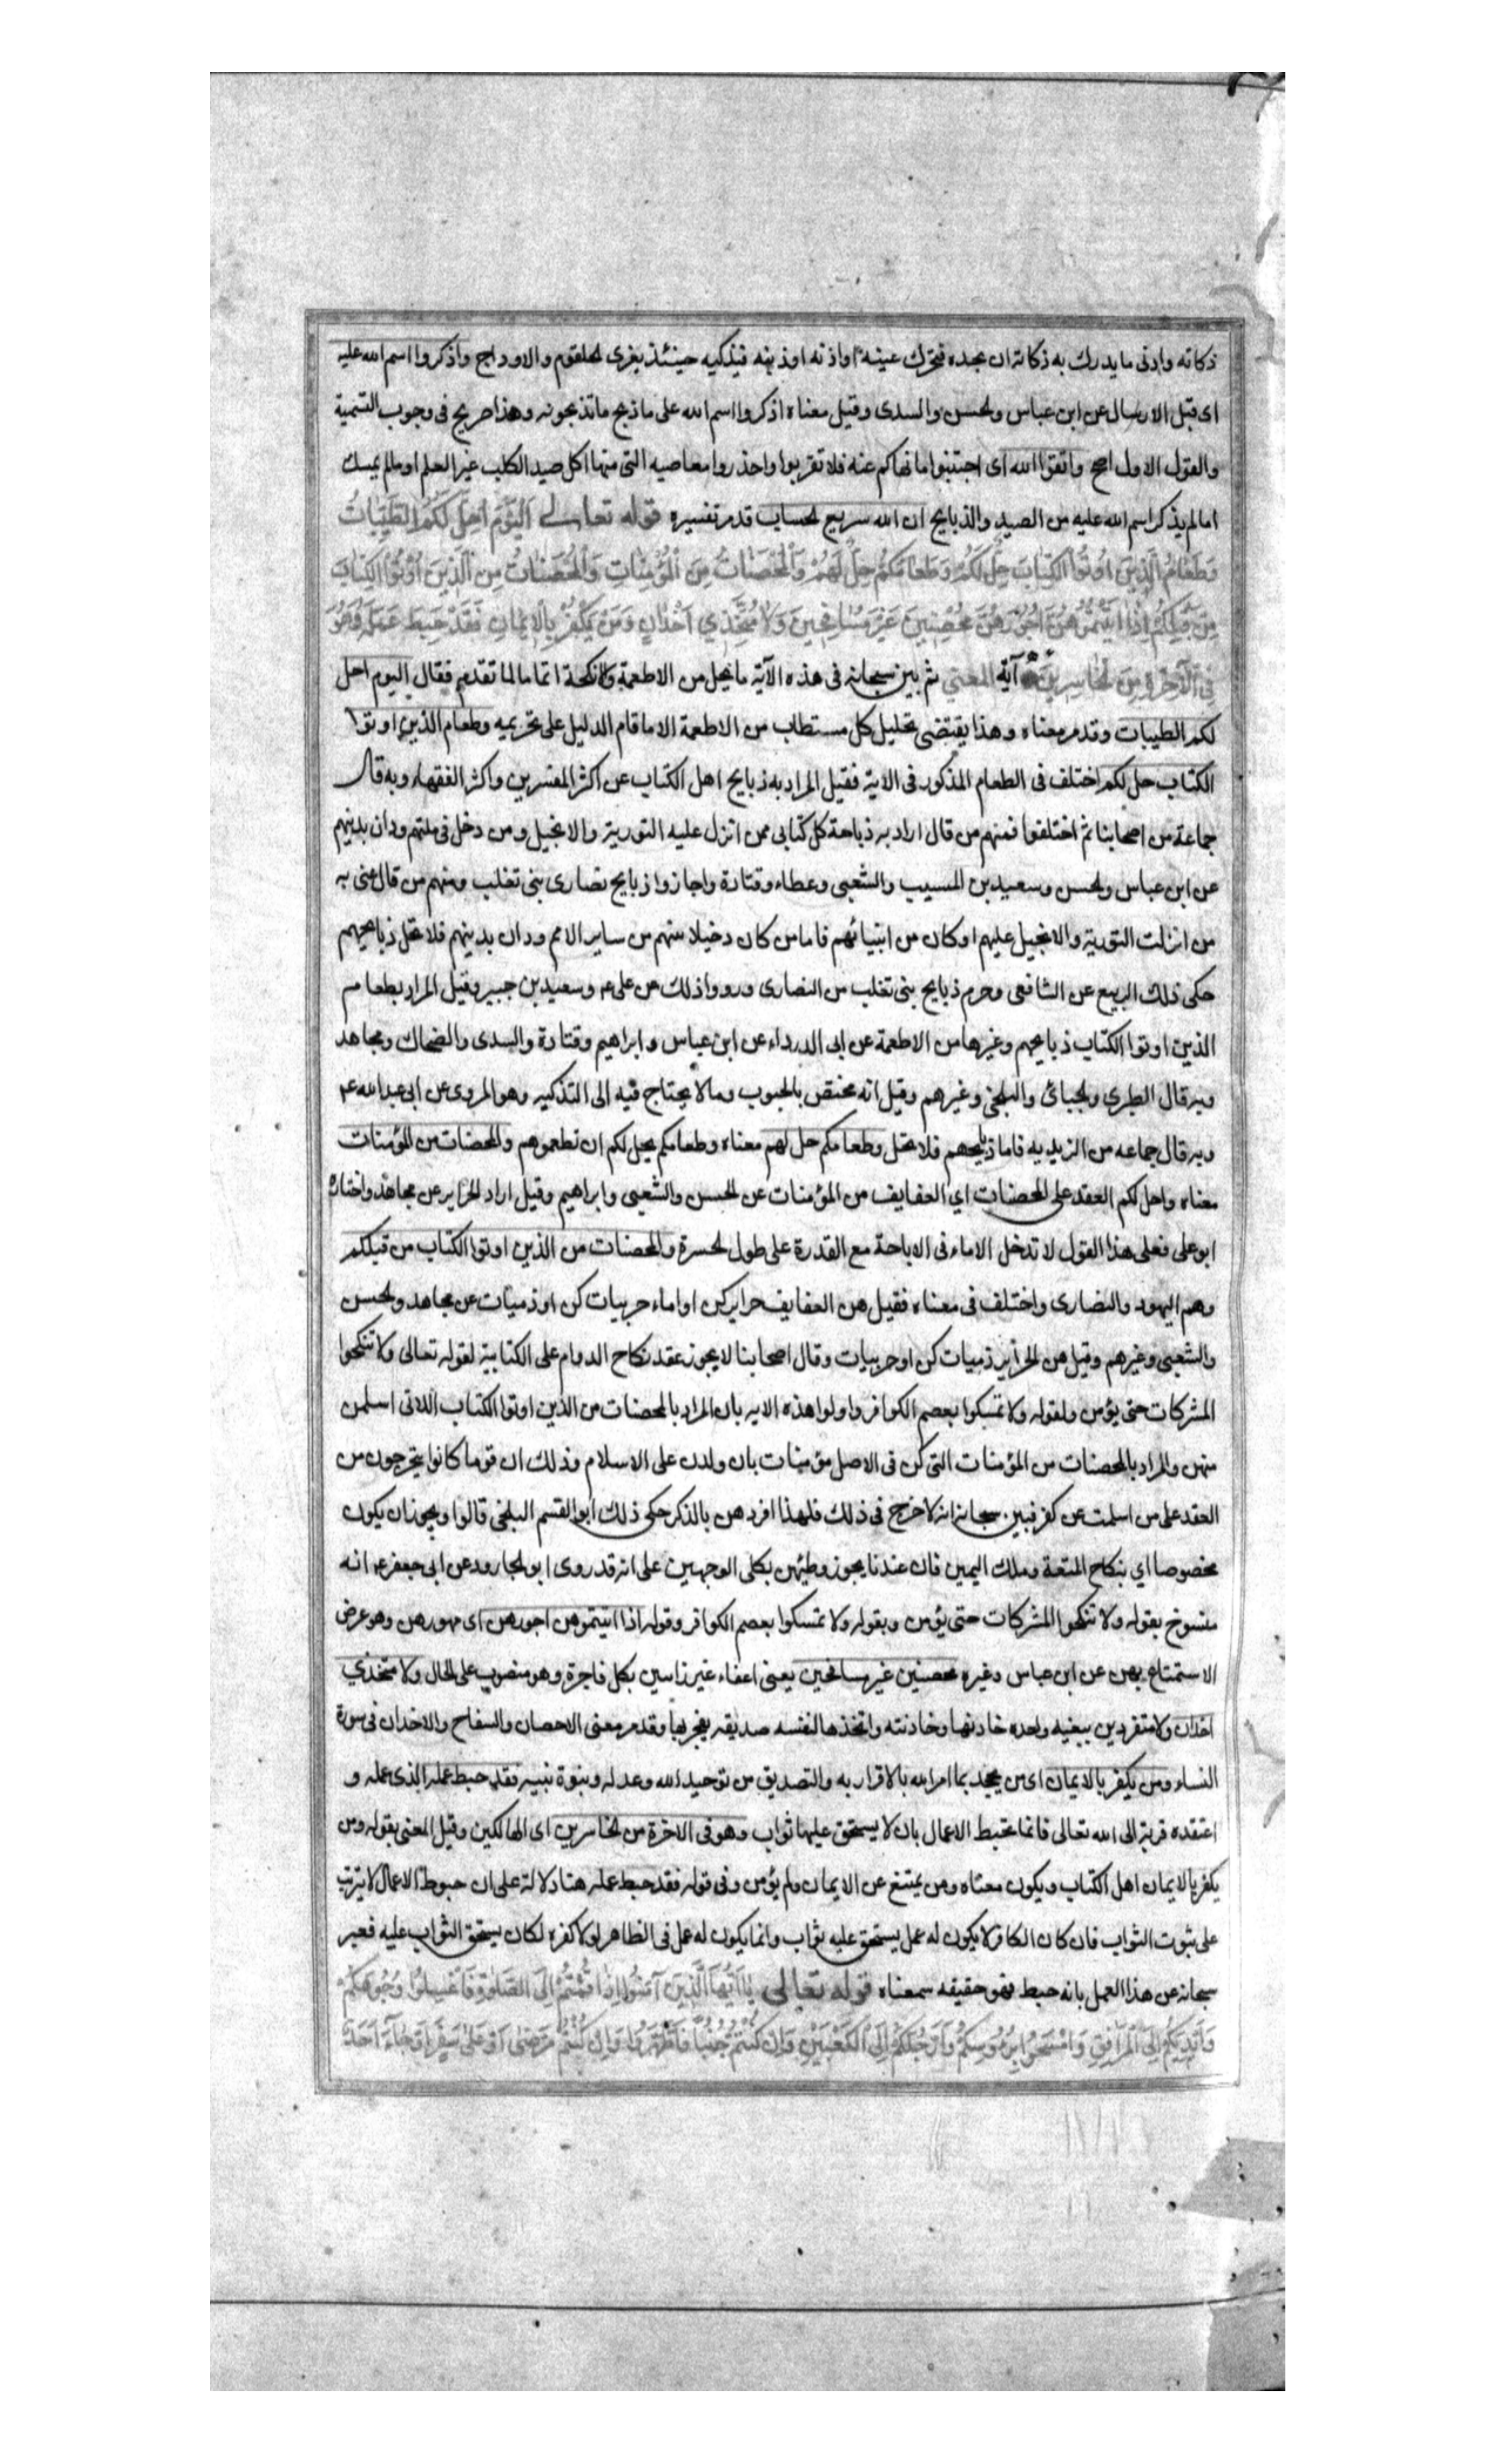 ذكاته وادنى ما يدرك به ذكاته ان يجده فتحرك عينه او اذنه او ذنبه فيذكيه حينئذ بفرى الحلقوم والاوداج واذكروا اسم الله عليه
اى قبل الارسال عن ابن عباس والحسن والسدى وقيل معناه اذكروا اسم الله على ما ذبح ما تذبحونه وهذا صريح فى وجوب التسمية
والقول الاول اصح واتقوا الله اى اجتنبوا ما نهاكم عنه فلا تقربوا واحذروا معاصيه التى منها اكل صيد الكلب غير المعلم او ما لم يمسك
اما لم يذكر اسم الله عليه من الصيد والذبايح ان الله سريع الحساب قد مر تفسيره قوله تعالى اَلْيَوْمَ اُحِلَّ لَكُمُ الطَّيِّبَاتُ
وَطَعَامُ الَّذِينَ اُوتُوا الْكِتَابَ حِلٌّ لَكُمْ وَطَعَامُكُمْ حِلٌّ لَهُمْ وَالْمُحْصَنَاتُ مِنَ الْمُؤْمِنَاتِ وَالْمُحْصَنَاتُ مِنَ الَّذِينَ اُوتُوا الْكِتَابَ
مِنْ قَبْلِكُمْ اِذَا اٰتَيْتُمُوهُنَّ اُجُورَهُنَّ مُحْصِنِينَ غَيْرَ مُسَافِحِينَ وَلَا مُتَّخِذِي اَخْدَانٍ وَمَنْ يَكْفُرْ بِالْاِيمَانِ فَقَدْ حَبِطَ عَمَلُهُ وَهُوَ
فِي الْاٰخِرَةِ مِنَ الْخَاسِرِينَ آية المعني ثم بين سبحانه فى هذه الآية ما يحل من الاطعمة والانكحة اتماما لما تقدم فقال اليوم احل
لكم الطيبات وقد مر معناه وهذا يقتضى تحليل كل مستطاب من الاطعمة الا ما قام الدليل على تحريمه وطعام الذين اوتوا
الكتاب حل لكم اختلف فى الطعام المذكور فى الاية فقيل المراد به ذبايح اهل الكتاب عن اكثر المفسرين واكثر الفقهاء وبه قال
جماعة من اصحابنا ثم اختلفوا فمنهم من قال اراد به ذباحة كل كتابى ممن انزل عليه التورية والانجيل ومن دخل فى ملتهم ودان بدينهم
عن ابن عباس والحسن وسعيد بن المسيب والشعبى وعطاء وقتادة واجازوا ذبايح نصارى بنى تغلب ومنهم من قال عنى به
من انزلت التورية والانجيل عليهم او كان من ابنيائهم فاما من كان دخيلا منهم من ساير الامم ودان بدينهم فلا تحل ذبايحهم
حكى ذلك الربيع عن الشافعى وحرم ذبايح بنى تغلب من النصارى ورووا ذلك عن على ع وسعيد بن جبير وقيل المراد بطعام
الذين اوتوا الكتاب ذبايحهم وغيرها من الاطعمة عن ابى الدرداء عن ابن عباس وابراهيم وقتادة والسدى والضحاك ومجاهد
وبه قال الطبرى والجبائى والبلخى وغيرهم وقيل انه مختص بالحبوب وما لا يحتاج فيه الى التذكيه وهو المروى عن ابى عبد الله ع
وبه قال جماعه من الزيديه فاما ذبايحهم فلا تحل وطعامكم حل لهم معناه وطعامكم يحل لكم ان تطعموهم والمحصنات من المؤمنات
معناه واحل لكم العقد على المحصنات اي العفايف من المؤمنات عن الحسن والشعبى وابراهيم وقيل اراد الحراير عن مجاهد واختاره
ابو على فعلى هذا القول لا تدخل الاماء فى الاباحة مع القدرة على طول الحرة والمحصنات من الذين اوتوا الكتاب من قبلكم
وهم اليهود والنصارى واختلف فى معناه فقيل هن العفايف حراير كن او اماء حربيات كن او ذميات عن مجاهد والحسن
والشعبى وغيرهم وقيل هن الحراير ذميات كن او حربيات وقال اصحابنا لا يجوز عقد نكاح الدوام على الكتابية لقوله تعالى ولا تنكحوا
المشركات حتى يؤمن ولقوله ولا تمسكوا بعصم الكوافر واولوا هذه الايه بان المراد بالمحصنات من الذين اوتوا الكتاب اللاتى اسلمن
منهن والمراد بالمحصنات من المؤمنات التى كن فى الاصل مؤمنات بان ولدن على الاسلام وذلك ان قوما كانوا يتحرجون من
العقد على من اسلمت عن كفر فبين سبحانه انه لا حرج فى ذلك فلهذا افردهن بالذكر حكى ذلك ابو القسم البلخى قالوا ويجوز ان يكون
مخصوصا اي بنكاح المتعة وملك اليمين فان عندنا يجوز وطئهن بكلى الوجهين على انه قد روى ابو الجارود عن ابى جعفر ع انه
منسوخ بقوله ولا تنكحوا المشركات حتى يؤمن وبقوله ولا تمسكوا بعصم الكوافر وقوله اذا اتيتموهن اجورهن اى مهورهن وهو عوض
الاستمتاع بهن عن ابن عباس وغيره محصنين غير مسافحين يعنى اعفاء غير زانين بكل فاجرة وهو منصوب على الحال ولا متخذي
اخدان ولا متفردين ببغيه واحده خادنها وخادنته واتخذها لنفسه صديقه يفجر بها وقد مر معنى الاحصان والسفاح والاخدان فى سورة
النساء ومن يكفر بالايمان اى من يجحد بما امر الله بالاقرار به والتصديق من توحيد الله وعدله ونبوة نبيه فقد حبط عمله الذى عمله و
اعتقده قربة الى الله تعالى فانما تحبط الاعمال بان لا يستحق عليها ثواب وهو فى الاخرة من الخاسرين اى الهالكين وقيل المعنى بقوله ومن
يكفر بالايمان اهل الكتاب ويكون معناه ومن يمتنع عن الايمان ولم يؤمن وفى قوله فقد حبط عمله هنا دلالة على ان حبوط الاعمال لا يترتب
على ثبوت الثواب فان كان الكافر لا يكون له عمل يستحق عليه ثواب وانما يكون له عمل فى الظاهر لولا كفره لكان يستحق الثواب عليه فعبر
سبحانه عن هذا العمل بانه حبط فهو حقيقه معناه قوله تعالى يَا اَيُّهَا الَّذِينَ آمَنُوا اِذَا قُمْتُمْ اِلَى الصَّلٰوةِ فَاغْسِلُوا وُجُوهَكُمْ
وَاَيْدِيَكُمْ اِلَى الْمَرَافِقِ وَامْسَحُوا بِرُءُوسِكُمْ وَاَرْجُلَكُمْ اِلَى الْكَعْبَيْنِ وَاِنْ كُنْتُمْ جُنُبًا فَاطَّهَّرُوا وَاِنْ كُنْتُمْ مَرْضٰى اَوْ عَلٰى سَفَرٍ اَوْ جَاءَ اَحَدٌ